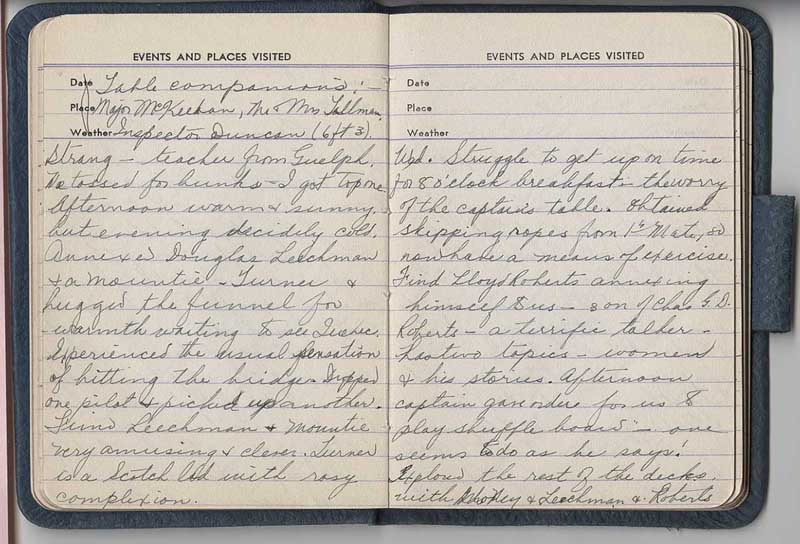 EVENTS AND PLACES VISITED
Date Table companions:—
Place Major McKeehan, Mr & Mrs Tallman,
Weather Inspector Duncan (6 ft 3).
Strang — teacher from Guelph.
We tossed for bunks — I got top one.
Afternoon warm & sunny
but evening decidily cold.
Annexed Douglas Leechman
& a mountie — Turner &
hugged the funnel for
warmth waiting to see Quebec.
Experienced the usual sensation
of hitting the bridge. Dropped
one pilot & picked up another.
Find Leechman & Mountie
very amusing & clever. Turner
is a Scotch lad with rosy
complexion.
EVENTS AND PLACES VISITED
Date
Place
Weather
Wed. Struggle to get up on time
for 8 o'clock breakfast — the worry
of the captain's table. Obtained
skipping ropes from 1st Mate, so
now have a means of exercise.
Find Lloyd Roberts annexing
himself to us — son of Chas G.D.
Roberts — a terrific talker —
has two topics — women
& his stories. Afternoon
captain gave order for us to
play shuffle board — one
seems to do as he says!
Explored the rest of the decks
with & Leechman & Roberts